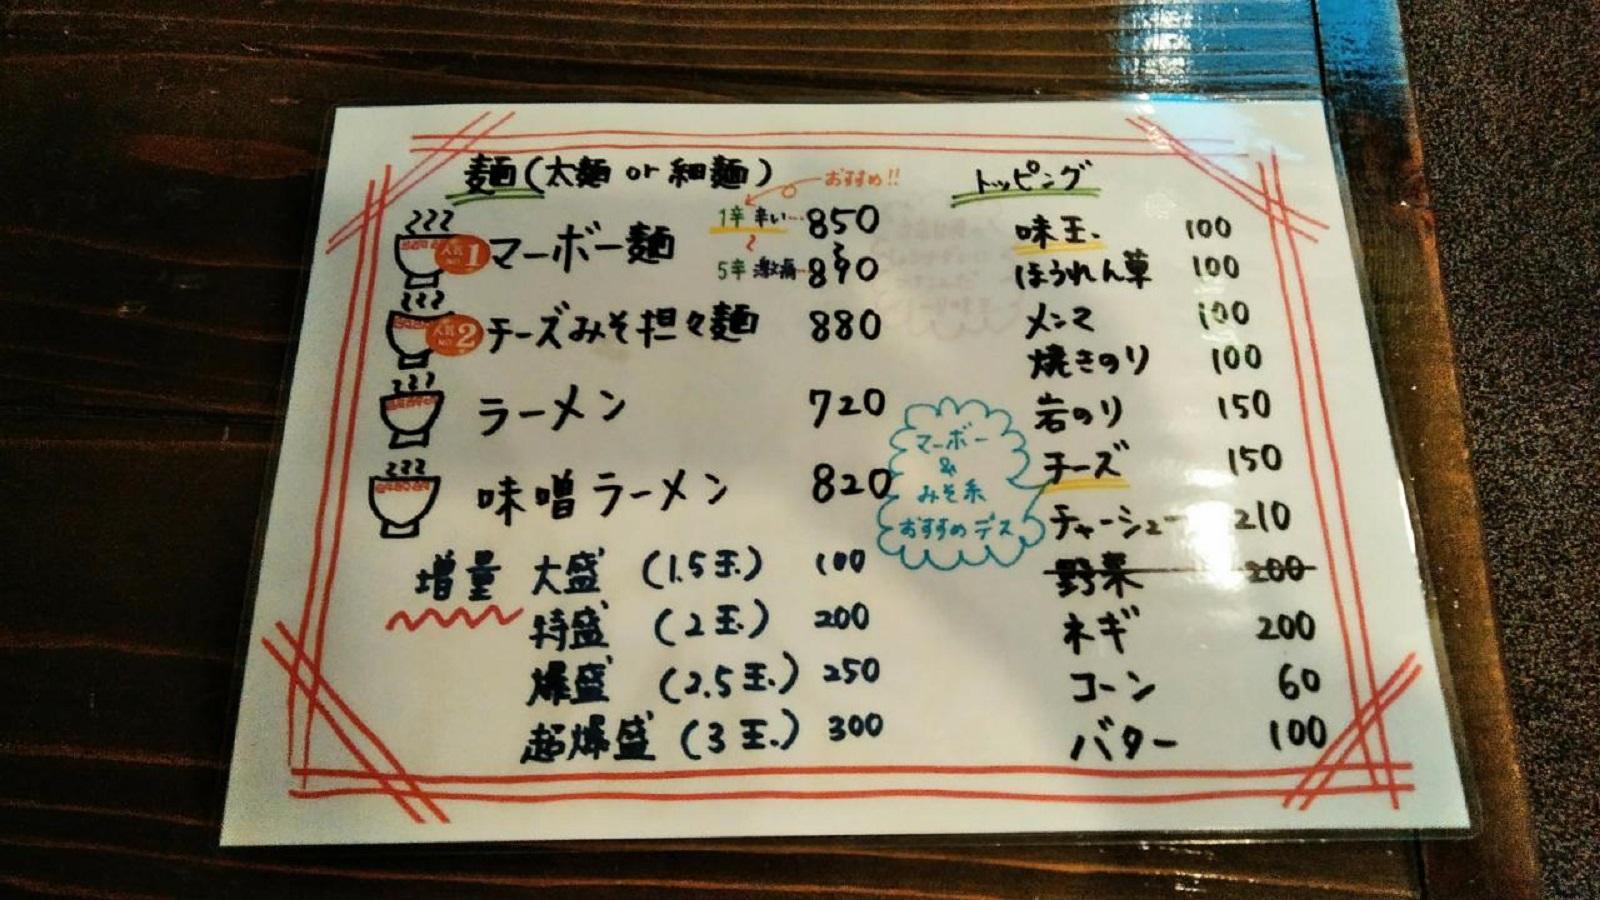 麺(太麺 or 細麺)
おすすめ!!
1辛 辛い…850
〜
人気No.1 マーボー麺
5辛 激痛…890
人気No.2 チーズみそ担々麺 880
ラーメン 720
味噌ラーメン 820
増量 大盛 (1.5玉) 100
特盛 (2玉) 200
爆盛 (2.5玉) 250
超爆盛 (3玉) 300
トッピング
味玉 100
ほうれん草 100
メンマ 100
焼きのり 100
岩のり 150
チーズ 150
チャーシュー 210
野菜 200
ネギ 200
コーン 60
バター 100
マーボー
&
みそ系
おすすめデス